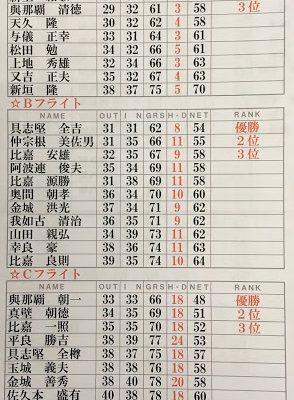 與那覇 清徳 29 32 61 3 58 3位
天久 隆 30 31 61 3 58
与儀 正幸 33 31 64 3 61
松田 勉 34 32 66 5 61
上地 秀雄 32 34 66 3 63
又吉 正夫 35 32 67 4 63
新垣 隆 35 35 70 5
☆Bフライト
NAME OUT I N GRS H・D NET RANK
具志堅 全吉 31 31 62 8 54 優勝
仲宗根 美佐男 31 35 66 11 55 2位
比嘉 安雄 32 35 67 9 58 3位
阿波連 俊夫 35 34 69 11 58
比嘉 源勝 31 38 69 11 58
奥間 朝孝 36 34 70 10 60
金城 洪光 37 34 71 9 62
我如古 清治 36 35 71 9 62
山田 親弘 34 39 73 11 62
幸良 豪 38 36 74 11 63
比嘉 良則 39 35 74 10 64
☆Cフライト
NAME OUT I N GRS H・D NET RANK
與那覇 朝一 33 33 66 18 48 優勝
真壁 朝徳 34 35 69 18 51 2位
比嘉 一照 35 35 70 18 52 3位
平良 勝吉 38 39 77 24 53
具志堅 全樽 38 37 75 18 57
玉城 義夫 38 38 76 18 58
金城 善秀 38 40 78 20 58
佐久本 盛有 40 38 78 18 60